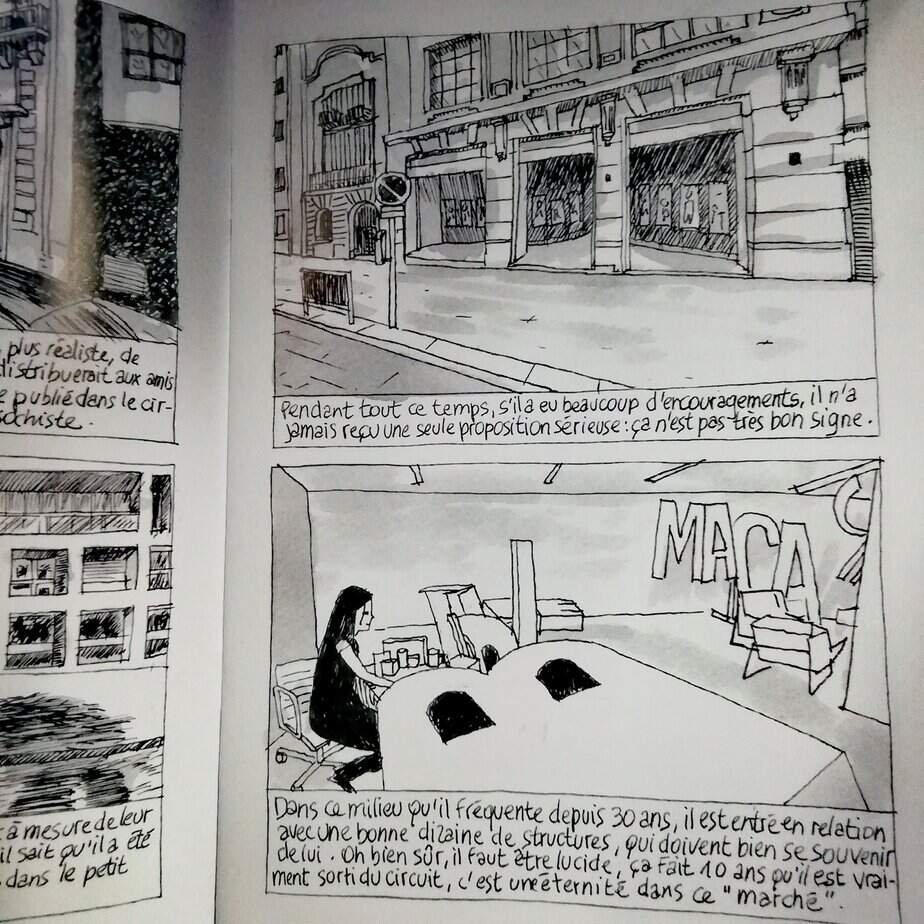 plus réaliste, de
distribuerait aux amis
e publié dans le cir-
sochiste.
à mesure de leur
il sait qu'il a été
dans le petit
Pendant tout ce temps, s'il a eu beaucoup d'encouragements, il n'a
jamais reçu une seule proposition sérieuse : ça n'est pas très bon signe.
MACA
Dans ce milieu qu'il fréquente depuis 30 ans, il est entré en relation
avec une bonne dizaine de structures, qui doivent bien se souvenir
de lui. Oh bien sûr, il faut être lucide, ça fait 10 ans qu'il est vrai-
ment sorti du circuit, c'est une éternité dans ce "marché".